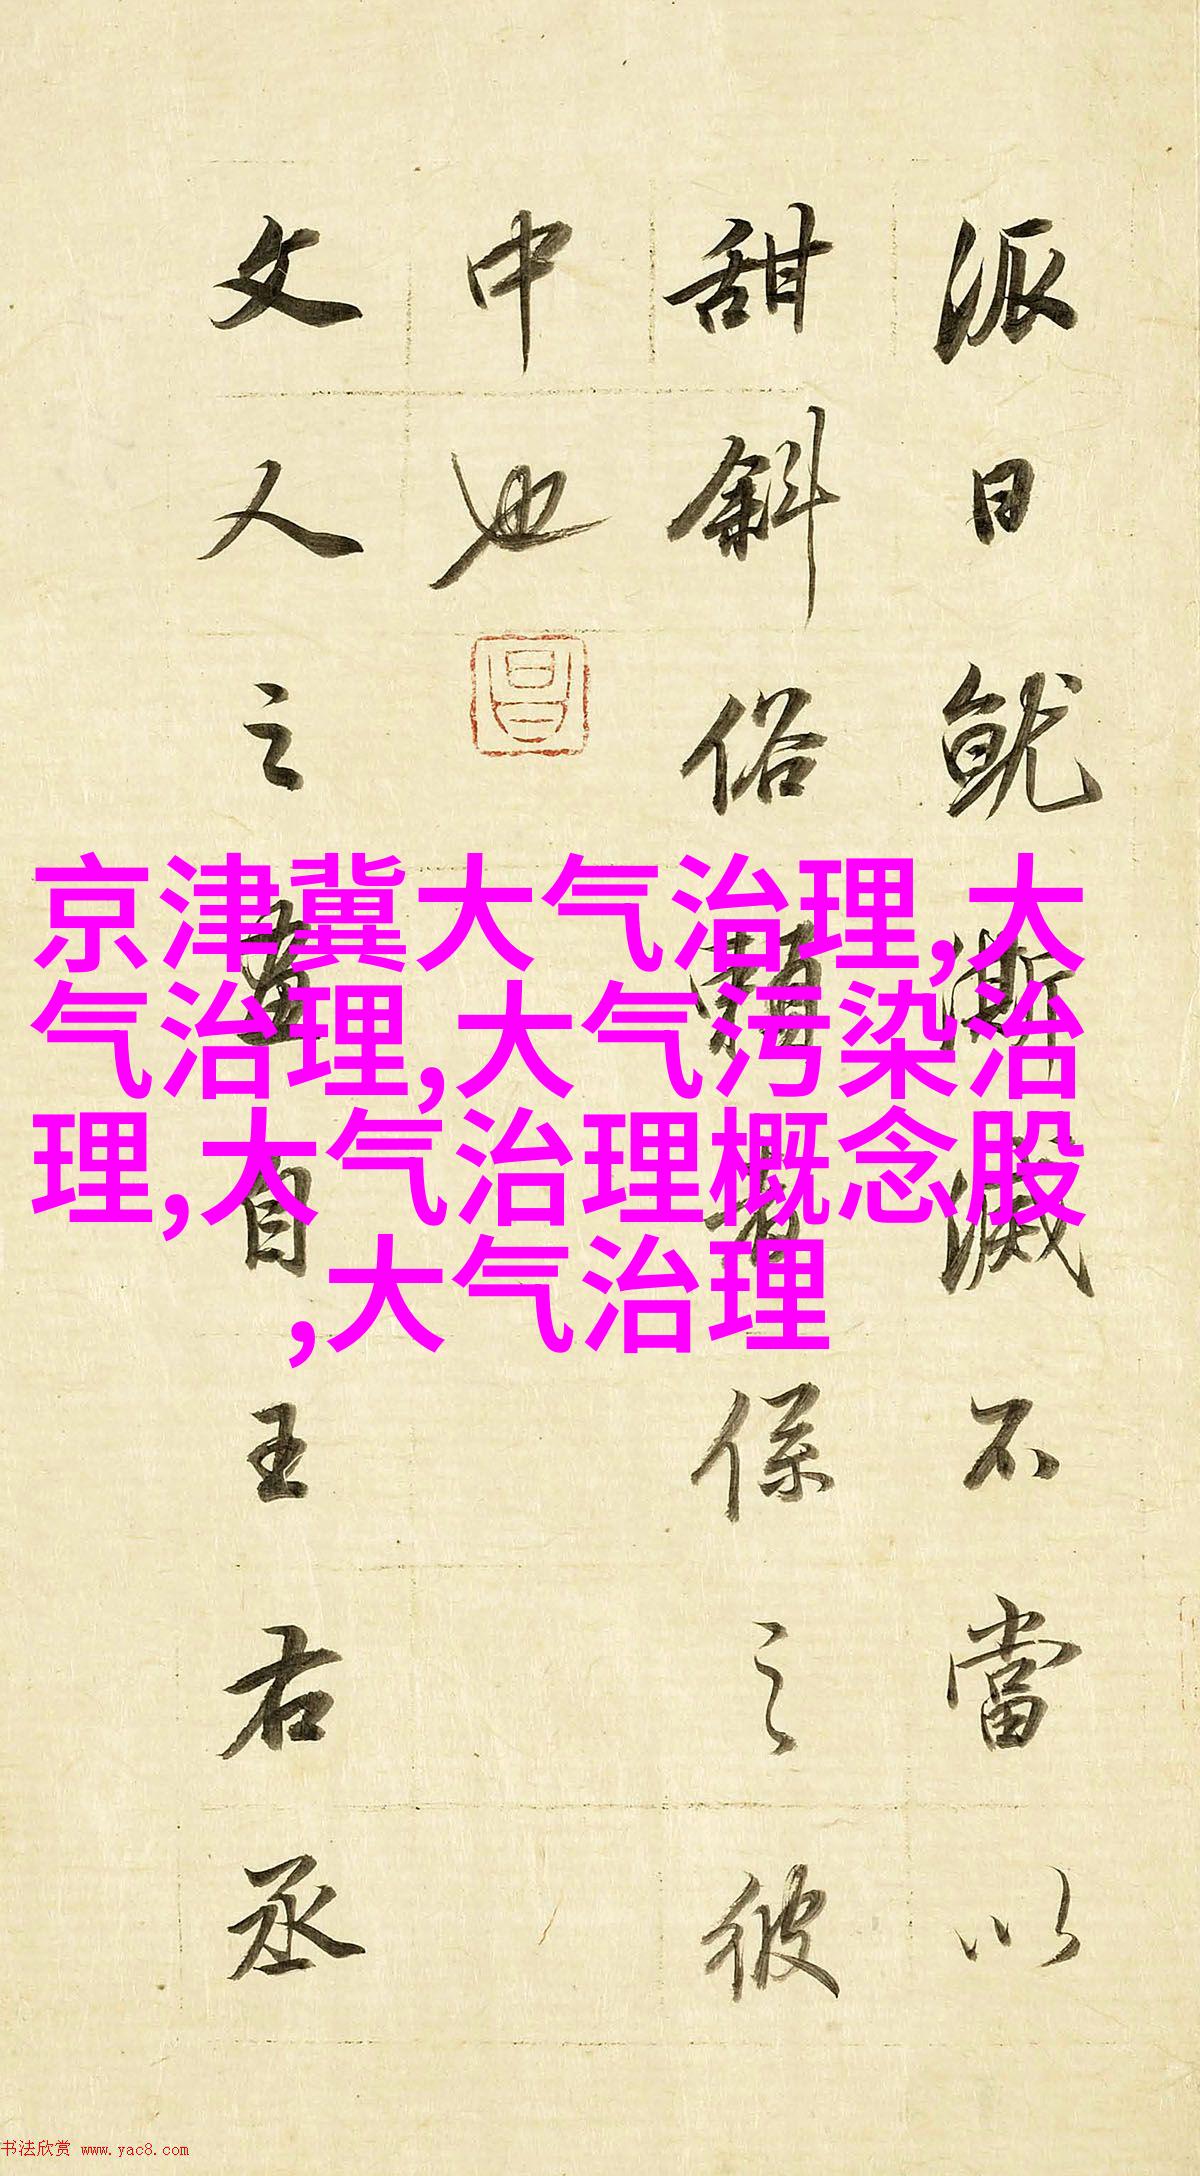 派日就漸滅不當以
甜斜俗賴者係之彼
中也
昌
文人之畫自王右丞
京津冀大气治理,大
气治理,大气污染治
理,大气治理概念股
,大气治理
书法欣赏 www.yac8.com